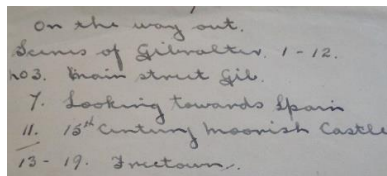 On the way out.
Scenes of Gibralter. 1-12.
no3. Main street Gib.
7. Looking towards Spain
11. 15th Century Moorish Castle
13-19. Freetown.